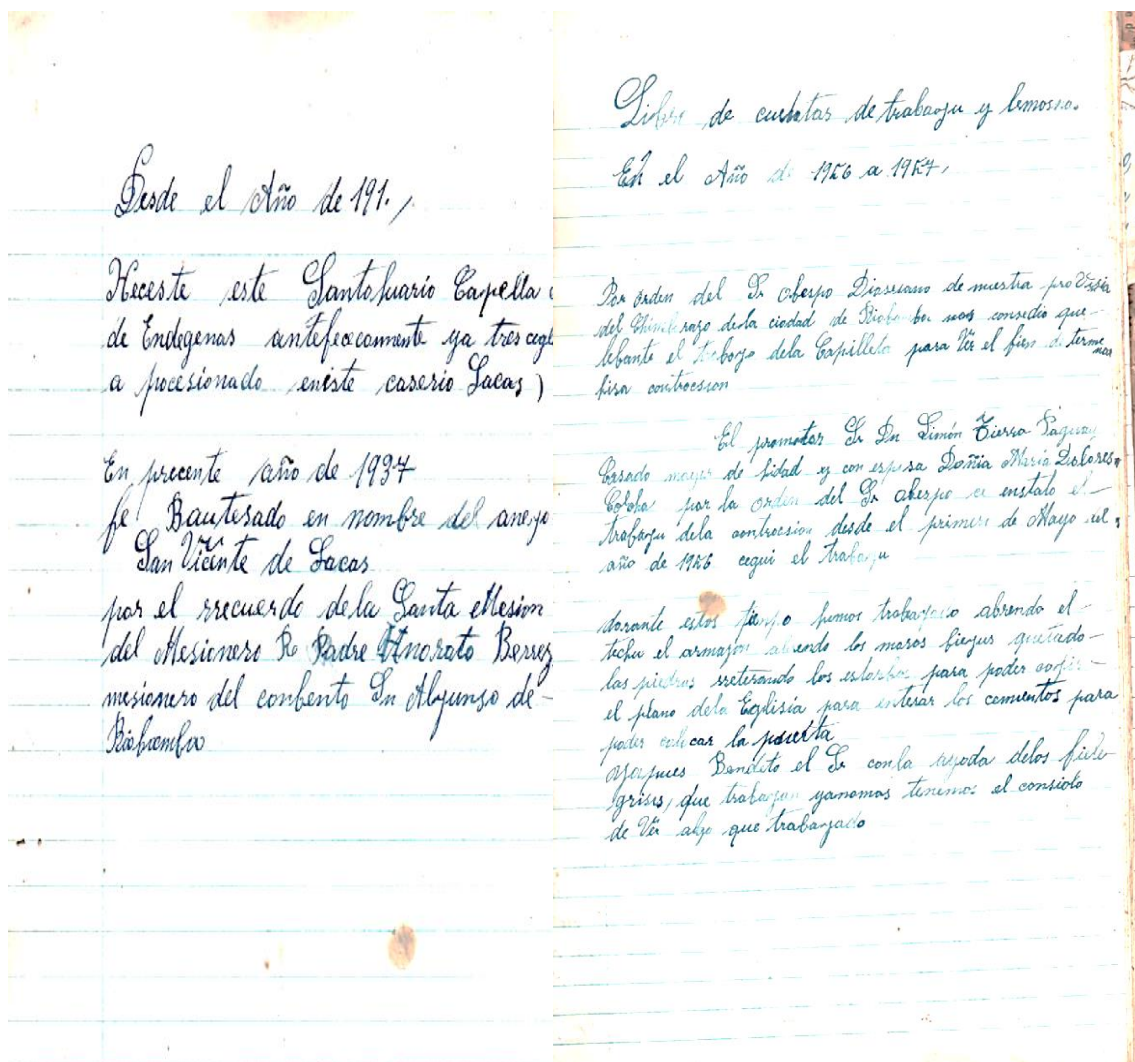 Desde el Año de 191.,
Neceste este Santohuario Capella
de Endegenas antefececonmente ya tres cegl
a pocesionado eneste caserio Lacas)
En precente año de 1934
fe Bautesado en nombre del anejo
San Vicente de Lacas
por el rrecuerdo dela Santa Mesion
del Mesionero R. Padre Hnorato Berrez
mesionero del conbento Sn Alfunso de-
Riobamba
Libro de cuentas de trabajo y lemosna.
En el Año de 1956 a 1957,
Por orden del Sr obespo Diosesano de nuestra provisia
del Chimborazo dela ciodad de Riobamba nos consedio que-
lebante el trabajo dela Capilleta para Ver el fien de termenar
hisa controcsion
El promotor Sr Dn Simón Tierra Paguay
Casado mayor de hidad y con espisa Doñia Maria Dolores
por la orden del Sr obespo ce enstalo el-
trabaju dela controcsion desde el primero de Mayo del
año de 1956 cegui el trabaju
dorante estos tienpo humos trabajado abrendo el-
techu el armajon abrendo los muros biegus quetado-
las piedras rreterando los estorbos para poder
el plano dela Eglisia para enterar los cementos para
poder colocar la puerta
Bendeto el Sr conla ayoda delos fiele
grisis, que trabajan yanomas tenemos el consiolo
de Ver algo que trabanjado